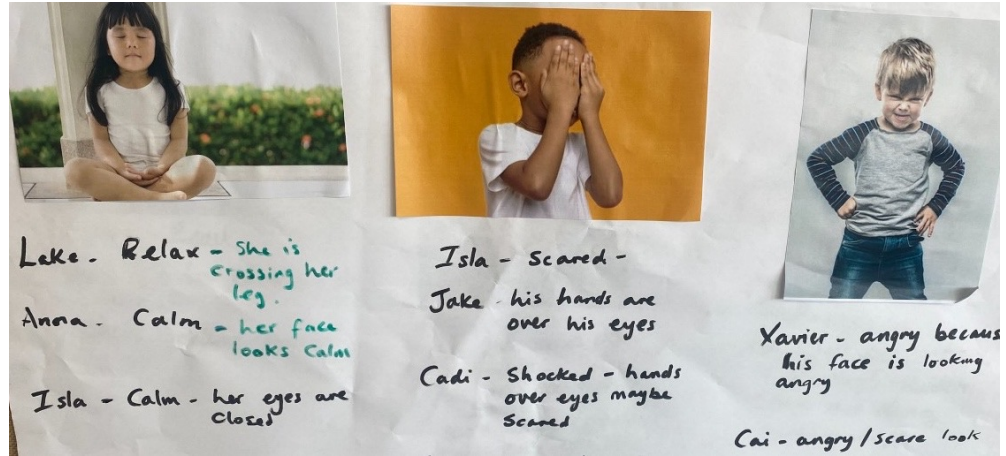 Lake - Relax - She is
crossing her
leg.
Anna - Calm - her face
looks Calm
Isla - Calm - her eyes are
closed
Isla - Scared -
Jake - his hands are
over his eyes
Cadi - Shocked - hands
over eyes maybe
Scared
Xavier - angry becaus
his face is looking
angry
Cai - angry / scare look